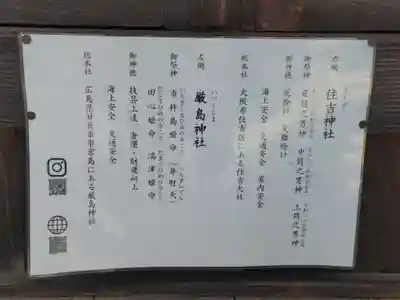 右側
住吉神社
御祭神
底筒之男神 中筒之男神 上筒之男神
御神徳
厄除け 災難除け
海上安全 交通安全 家内安全
総本社
大阪市住吉区にある住吉大社
左側
いつくしま
厳島神社
御祭神
市杵島姫命 「弁財天」
田心姫命 湍津姫命
御神徳
技芸上達 金運・財運向上
海上安全 交通安全
総本社
広島県廿日市市宮島にある厳島神社